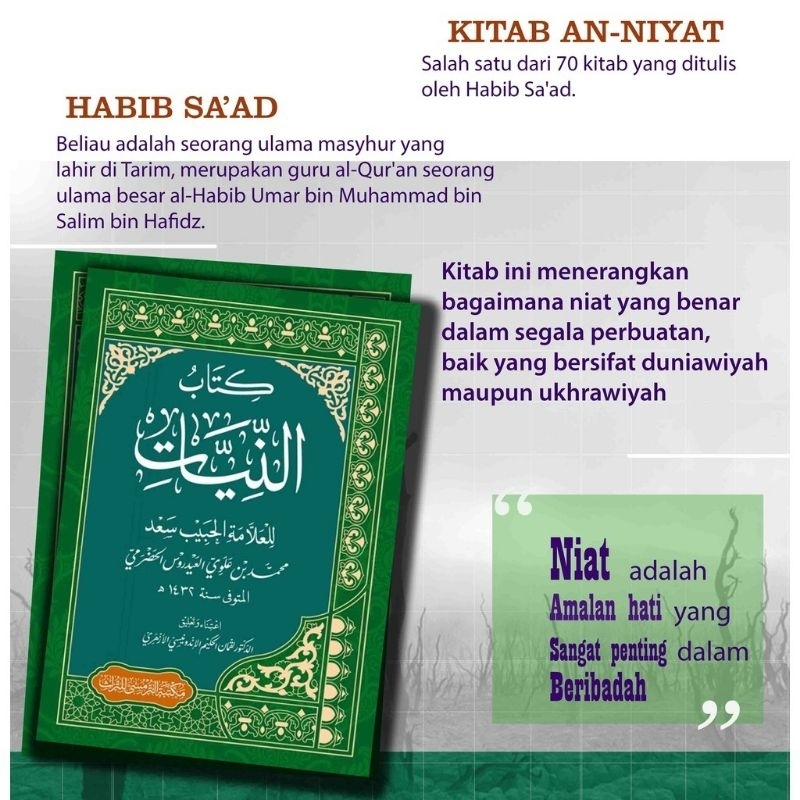 KITAB AN-NIYAT
Salah satu dari 70 kitab yang ditulis
oleh Habib Sa'ad.
HABIB SA'AD
Beliau adalah seorang ulama masyhur yang
lahir di Tarim, merupakan guru al-Qur'an seorang
ulama besar al-Habib Umar bin Muhammad bin
Salim bin Hafidz.
Kitab ini menerangkan
bagaimana niat yang benar
dalam segala perbuatan,
baik yang bersifat duniawiyah
maupun ukhrawiyah
كِتَابُ
النِّيَّاتِ
لِلْعَلَّامَةِ الْحَبِيْبِ سَعْد
مُحَمَّد بْنِ عَلَوِيّ الْعَيْدَرُوْسِ الْحَضْرَمِيّ
المتوفى سنة ١٤٣٢ هـ
اِعْتِنَاء وَتَعْلِيق
الدكتور لقمان الحكيم الإندونيسي الأزهري
مكتبة الترمسي للتراث
“
Niat adalah
Amalan hati yang
Sangat penting dalam
Beribadah
”